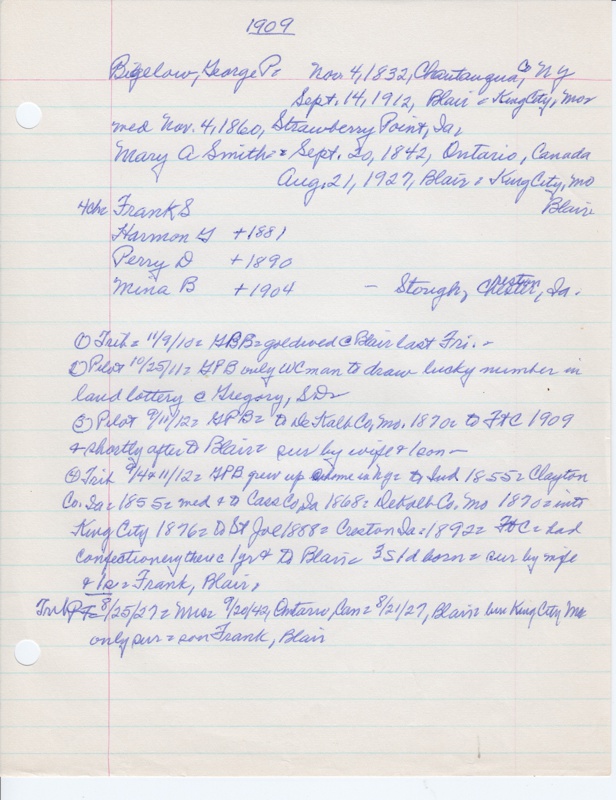 1909
Bigelow, George P = Nov. 4, 1832, Chautauqua, Co NY
Sept. 14, 1912, Blair = King City, Mo
med Nov. 4, 1860, Strawberry Point, Ia,
Mary A Smith = Sept. 20, 1842, Ontario, Canada
Aug. 21, 1927, Blair = King City, Mo
4 chr Frank S Blair
Harmon G +1881
Perry D +1890
Mina B +1904 - Stough, Chester, Ia.
① Trib = 11/9/10 = GPB = gold wed @ Blair last Fri. -
② Pilot 10/25/11 = GPB only WC man to draw lucky number in
land lottery @ Gregory, SD
③ Pilot 9/11/12 = GPB = to DeKalb Co, Mo. 1870 = to FtC 1909
& shortly after to Blair = sur by wife & 1 son -
④ Trib 9/4 & 11/12 = GPB grew up to Ind 1855 = Clayton
Co. Ia = 1855 = med & to Cass Co, Ia 1868 = DeKalb Co. Mo 1870 = into
King City 1876 = to St Joe 1888 = Creston Ia = 1892 = FtC = had
confectionery there 1 yr & to Blair = 3s 1d born = sur by wife
& 1s = Frank, Blair,
Trib 8/25/27 = Mrs = 9/20/42, Ontario, Can = 8/21/27, Blair = bur King City Mo
only sur = son Frank, Blair